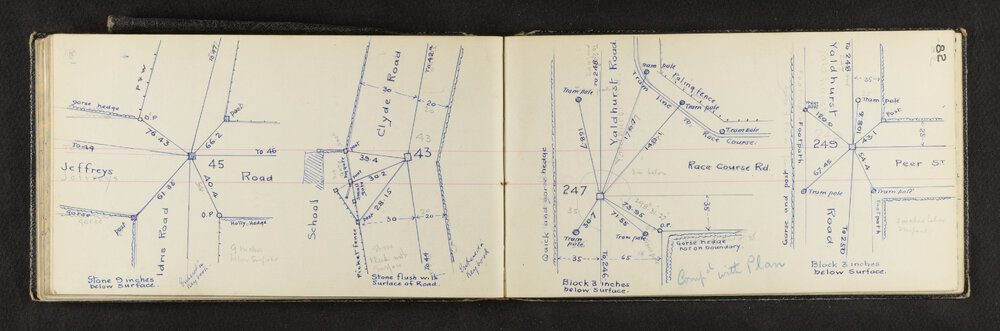 82
To 47
P & W
Gorse hedge
O.P
post
76.43
66.2
To 44
To 46
45
Jeffreys
Road
61.88
40.4
Gorse
post
O.P.
Holly hedge
Idris Road
9 inches
below Surface
Stone 9 inches
below Surface.
To 42
Clyde Road
20
43
43
39.4
30.2
28.15
School
30
20
Picket fence
To 44
Stone flush with
Surface of Road.
To 248
Yaldhurst Road
Tram pole
Tram line
Paling fence
Tram pole
Tram pole
Tram pole
Race Course.
168.7
176.7
149.1
Race Course Rd.
Quick and gorse hedge
247
35
30.7
71.55
73.95
O.P.
35
Tram pole
Tram pole
Gorse hedge
not on boundary.
35
65
To 246
Block 3 inches
below Surface.
Comp'd with Plan
To 248
Yaldhurst
35
Tram pole
Post
108.2
25
Footpath
249
Peer St
67.45
54.4
Tram pole
Tram pole
Gorse and post
Road
Footpark
To 250
3 inches below
Surface
Block 3 inches
below Surface.